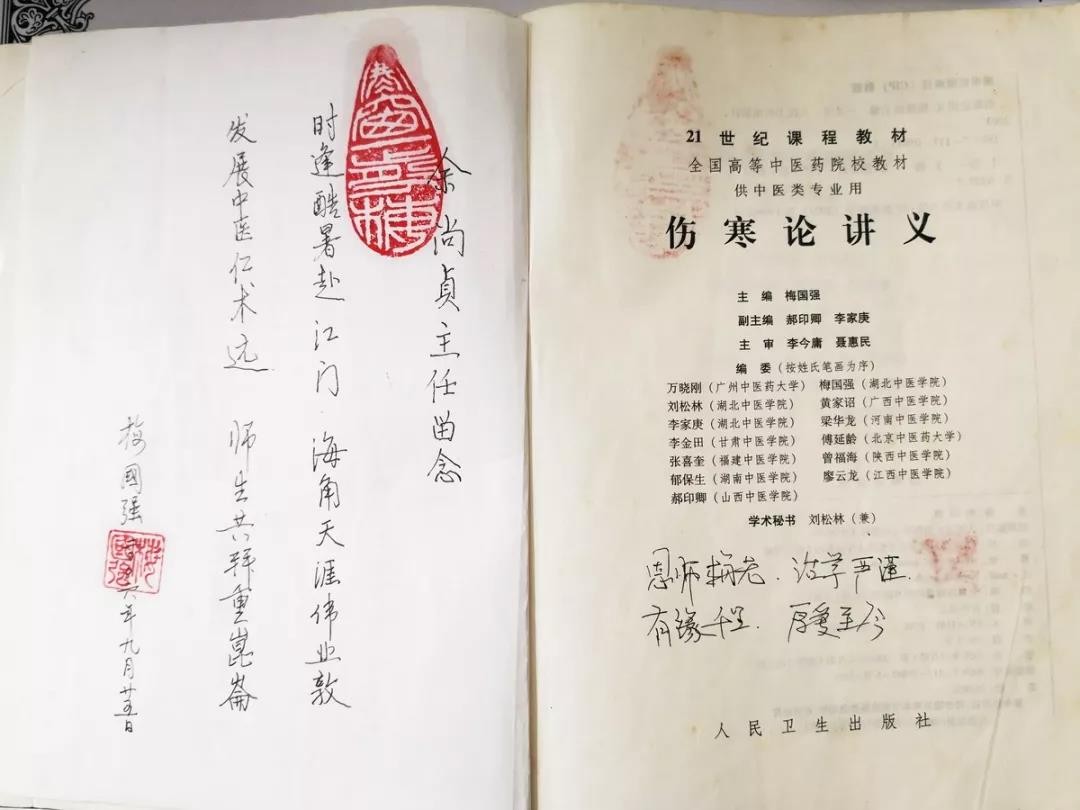 余尚贞主任留念
时逢酷暑赴江门 海角天涯伟业敦
发展中医仁术远 师生共拜重崑崙
梅國强
六年九月廿五日
21世纪课程教材
全国高等中医药院校教材
供中医类专业用
伤寒论讲义
主 编 梅国强
副主编 郝印卿 李家庚
主 审 李今庸 聂惠民
编 委(按姓氏笔画为序)
万晓刚(广州中医药大学) 梅国强(湖北中医学院)
刘松林(湖北中医学院) 黄家诏(广西中医学院)
李家庚(湖北中医学院) 梁华龙(河南中医学院)
李金田(甘肃中医学院) 傅延龄(北京中医药大学)
张喜奎(福建中医学院) 曾福海(陕西中医学院)
郁保生(湖南中医学院) 廖云龙(江西中医学院)
郝印卿(山西中医学院)
学术秘书 刘松林(兼)
恩师梅老、治学严谨
有缘千里、厚爱至今
人民卫生出版社